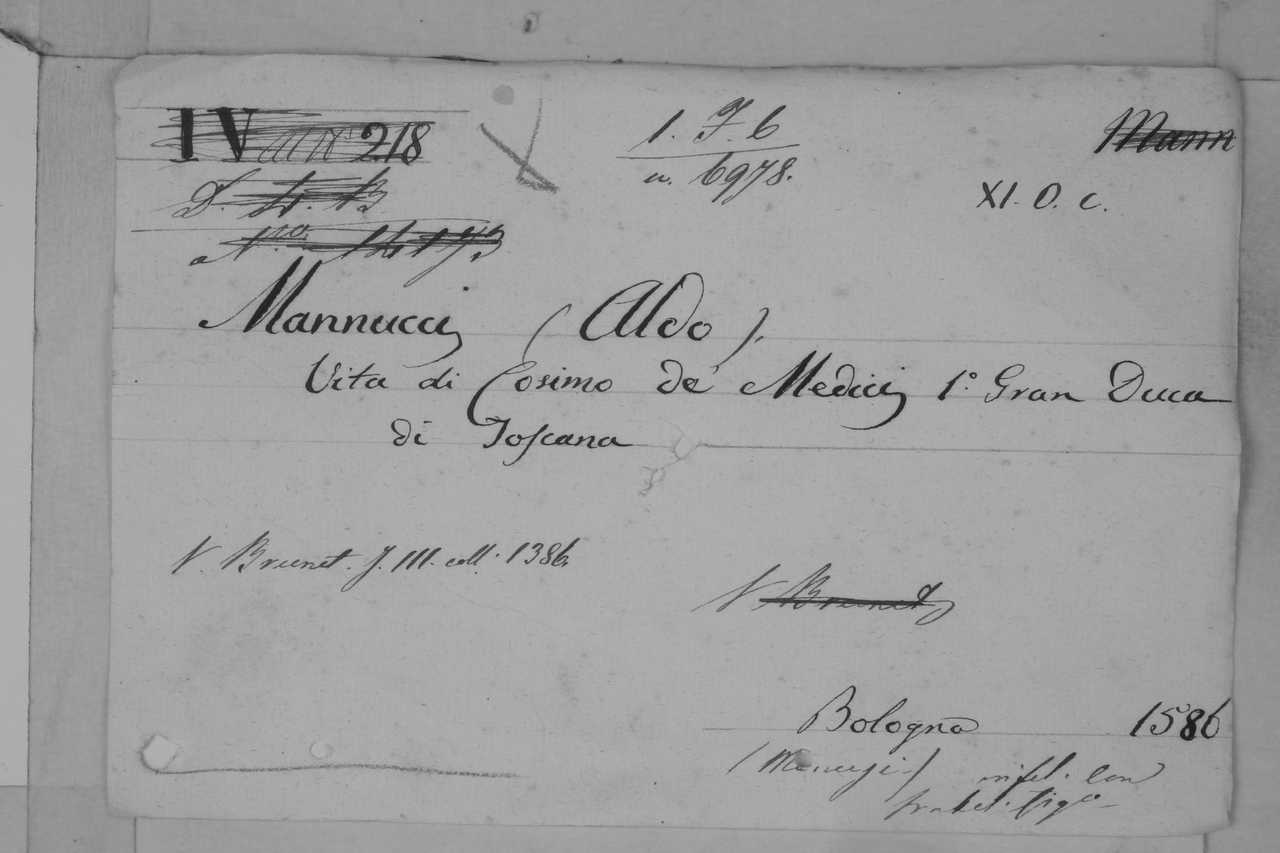 IV 218
1. F. 6
n. 6978.
Mann
XI. O. c.
Mannucci (Aldo).
Vita di Cosimo de' Medici 1° Gran Duca
di Toscana
V. Brunet. T. III. coll. 1386.
V Brunet
Bologna 1586